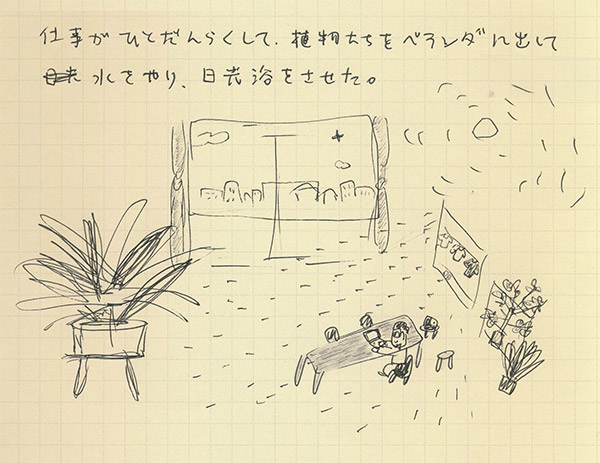 仕事がひとだんらくして、植物たちをベランダに出して
水をやり、日光浴をさせた。